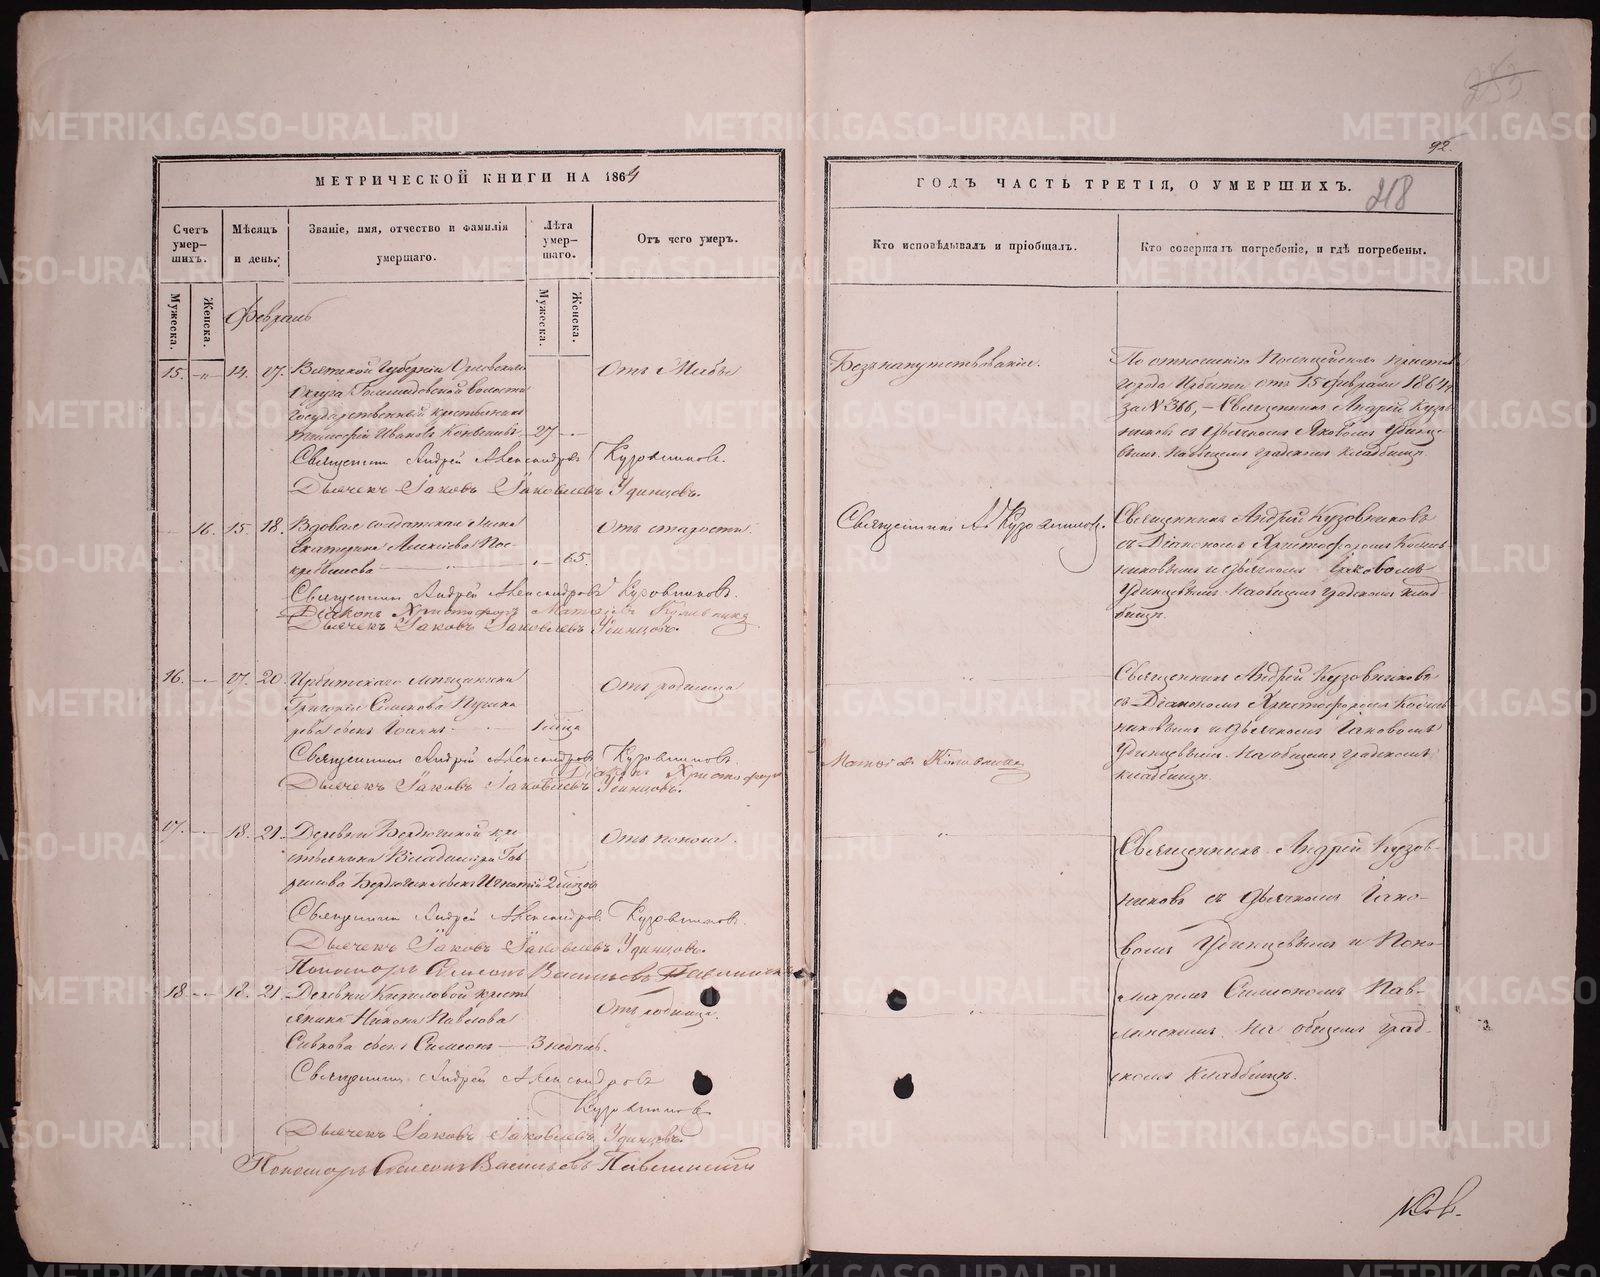 253
92.
МЕТРИЧЕСКОЙ КНИГИ НА 1864
ГОДЪ ЧАСТЬ ТРЕТІЯ, О УМЕРШИХЪ.
218
Счетъ умер-шихъ.
Мѣсяцъ и день.
Званіе, имя, отчество и фамилія умершаго.
Лѣта умер-шаго.
Отъ чего умеръ.
Кто исповѣдывалъ и пріобщалъ.
Кто совершалъ погребеніе, и гдѣ погребены.
Мужеска.
Женска.
Мужеска.
Женска.
Февраль
15. 14. 17. Вятской Губерніи Орловскаго
Округа волости
государственный крестьянинъ
Ивановъ 27
Священникъ Андрей Александровъ Кузовниковъ.
Дьячекъ Іаковъ Іаковлевъ Удинцовъ.
Безъ напутствованія.
По отношенію Полицейскаго Пристава
города Ирбити отъ 15 февраля 1864 г.
за № 366, – Священникъ Андрей Кузов-
никовъ съ Дьячкомъ Іаковомъ Удинце-
вымъ. На общемъ градскомъ кладбищѣ.
16. 15. 18. Вдовая солдатская жена
Екатерина Алексѣева Пос-
65.
Отъ старости.
Священникъ Андрей Александровъ Кузовниковъ.
Діаконъ Христофоръ
Дьячекъ Іаковъ Іаковлевъ Удинцовъ.
Священникъ Ан. Кузовниковъ.
Священникъ Андрей Кузовниковъ
съ Діакономъ Христофоромъ
и Дьячкомъ Іаковомъ
Удинцевымъ. На общемъ градскомъ клад-
бищѣ.
16. 17. 20. Ирбитскаго мѣщанина
Григорія
сынъ Іоаннъ.
Отъ родимца
Священникъ Андрей Александровъ Кузовниковъ.
Діаконъ Христофоръ
Дьячекъ Іаковъ Іаковлевъ Удинцовъ.
Священникъ Андрей Кузовниковъ
съ Діакономъ Христофоромъ
и Дьячкомъ Іаковомъ
Удинцевымъ. На общемъ градскомъ
кладбищѣ.
17. 18. 21. Деревни Бердюгиной кре-
стьянина Владиміра Гав-
рилова Бердюгина сынъ Игнатій 2 мѣсяцовъ
Отъ поноса.
Священникъ Андрей Александровъ Кузовниковъ.
Дьячекъ Іаковъ Іаковлевъ Удинцовъ.
Пономарь Симеонъ Васильевъ Павлинскій
Священникъ Андрей Кузов-
никовъ съ Дьячкомъ Іако-
вомъ Удинцевымъ и Поно-
маремъ Симеономъ Пав-
линскимъ. На общемъ град-
скомъ кладбищѣ.
18. 18. 21. Деревни Кириловой кресть-
янина Никона Павлова
Сивкова сынъ Симеонъ 3 недѣль.
Отъ родимца.
Священникъ Андрей Александровъ
Кузовниковъ
Дьячекъ Іаковъ Іаковлевъ Удинцовъ.
Пономарь Симеонъ Васильевъ Павлинскій
METRIKI.GASO-URAL.RU